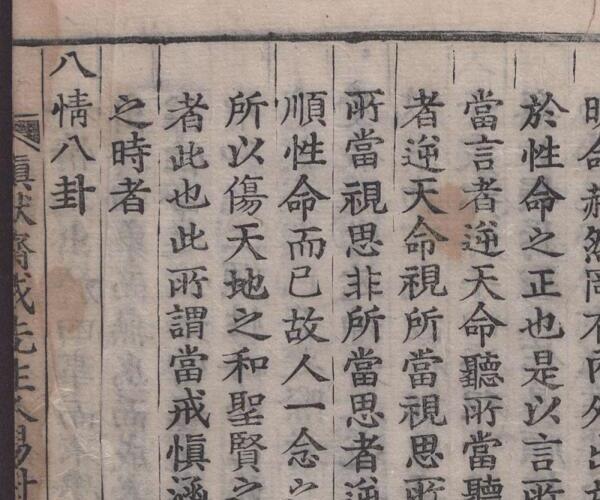 明命赫然罔不內外
於性命之正也是以言所
當言者逆天命聽所當聽
者逆天命視所當視思所
所當視思非所當思者逆
順性命而已故人一念之
所以傷天地之和聖賢之
者此也此所謂當戒慎涵
之時者
八情八卦
先生